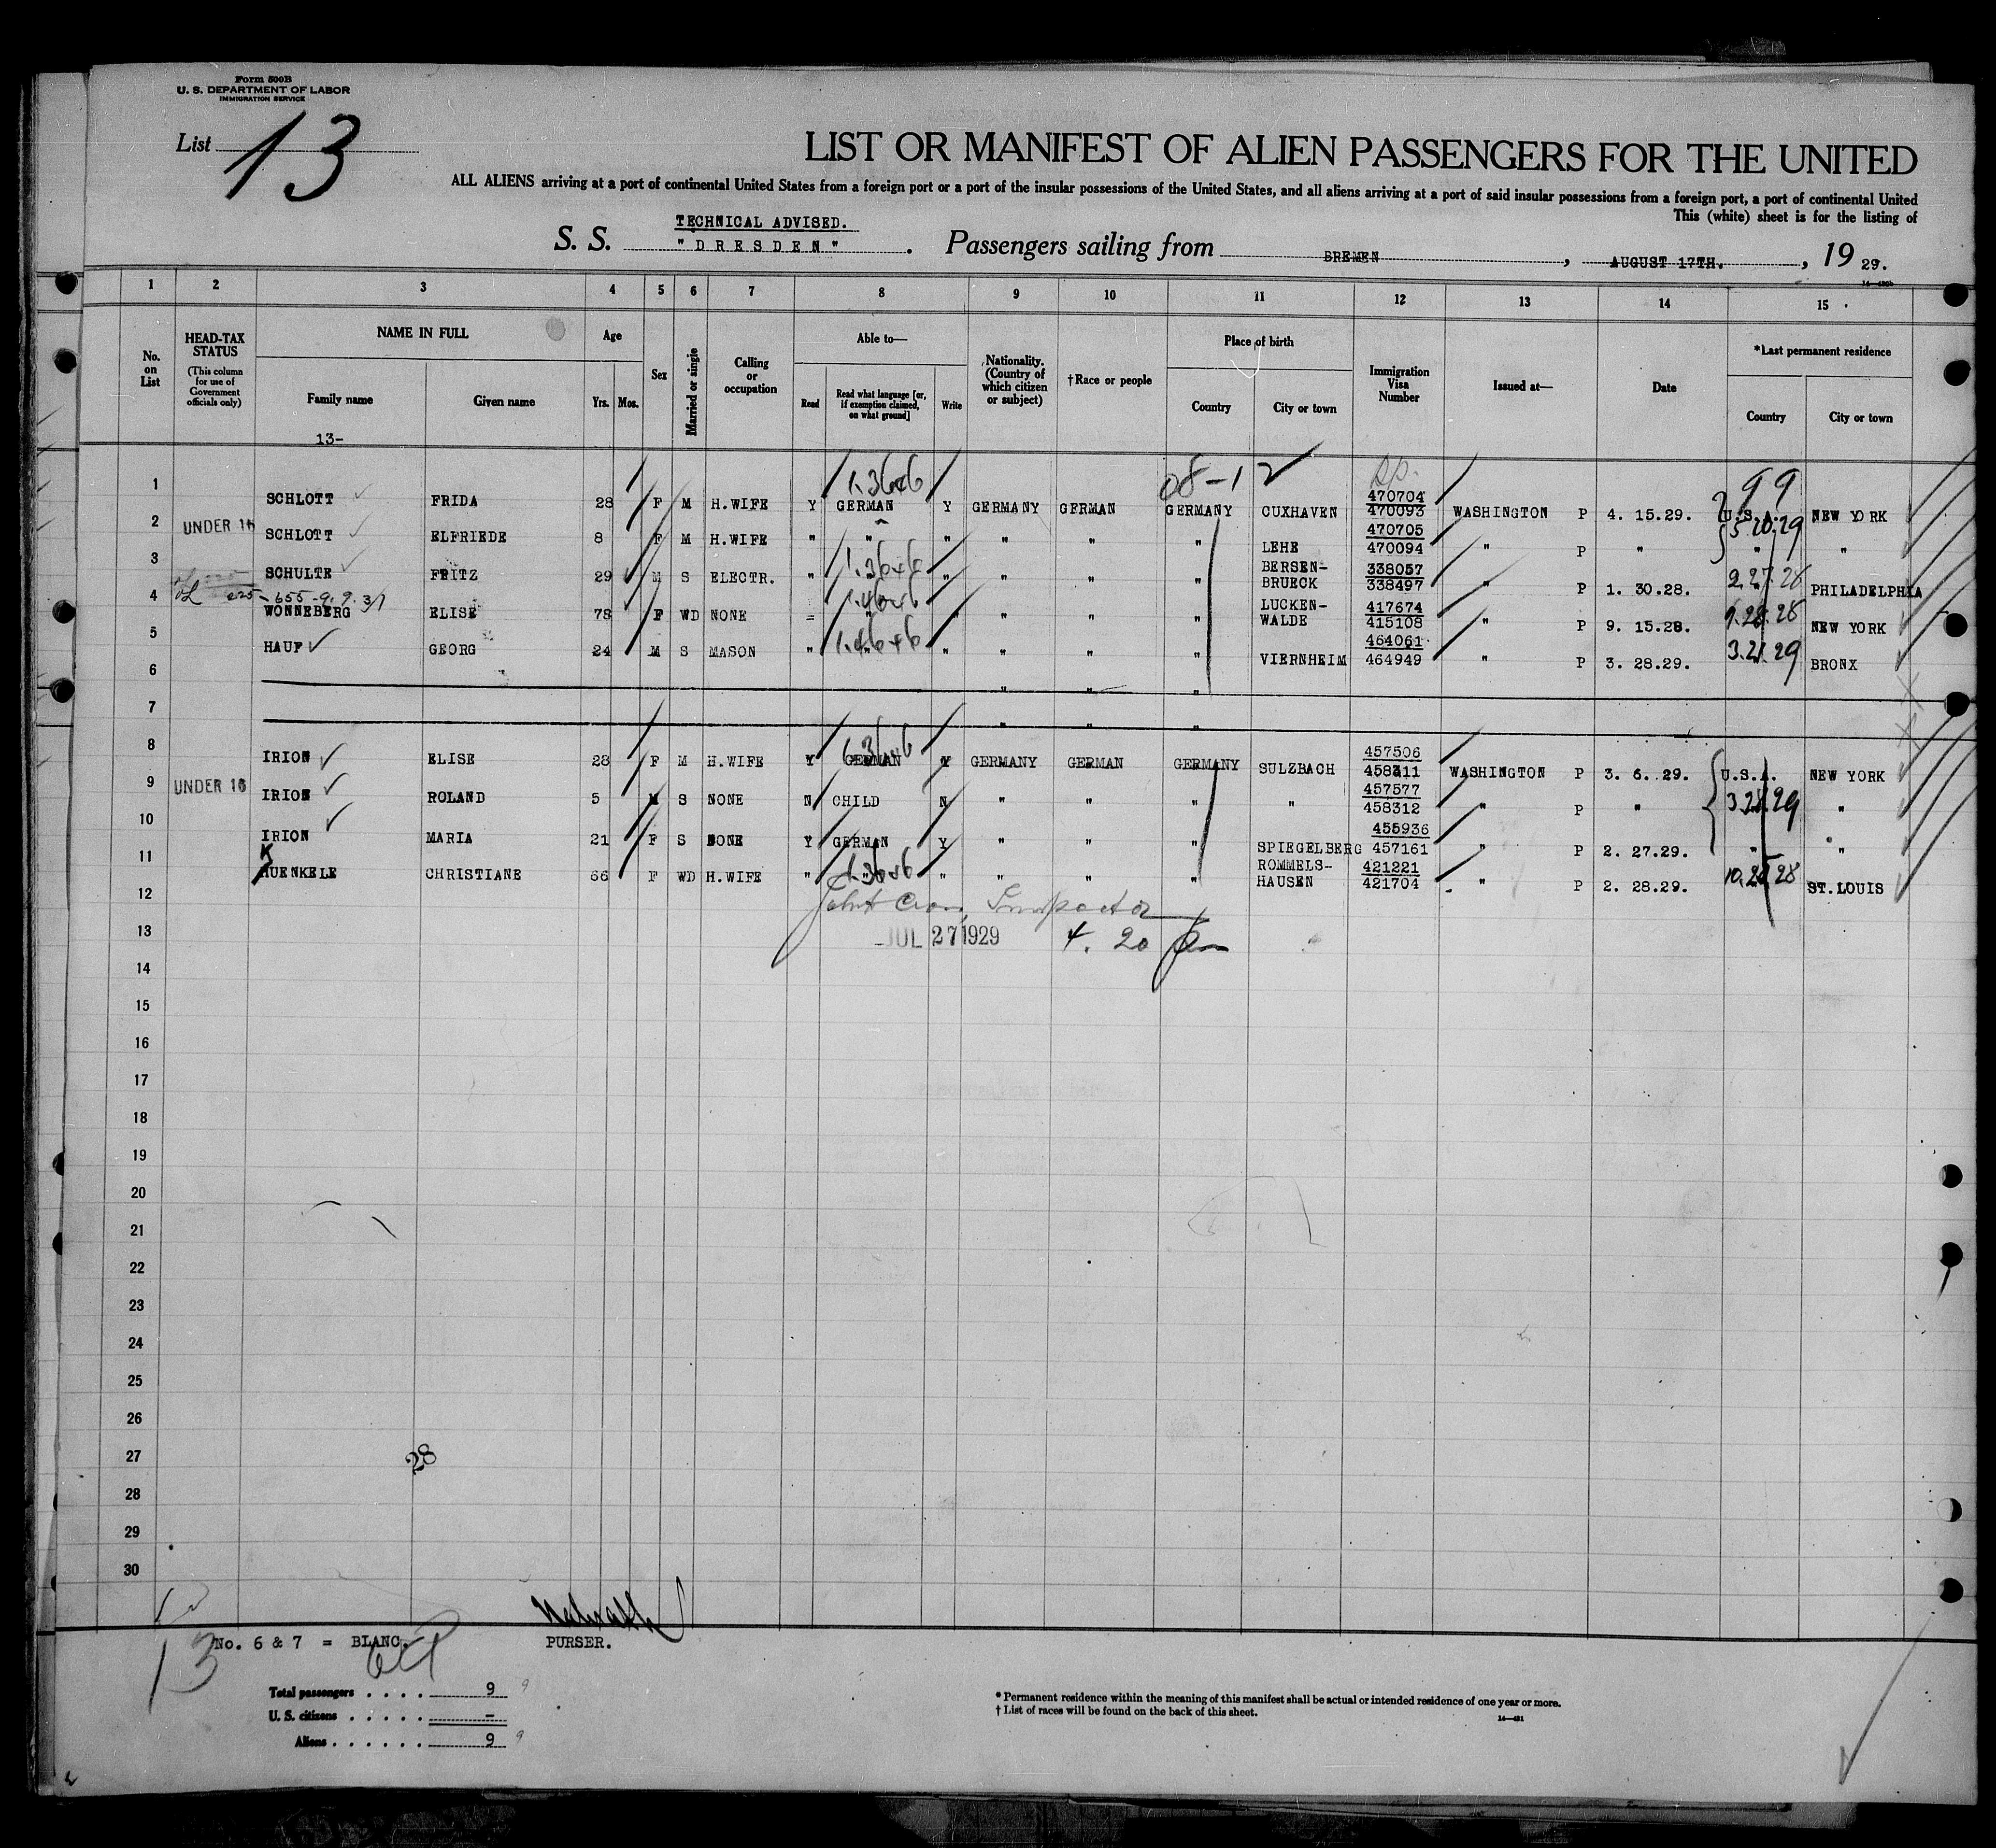 Form 500B
U. S. DEPARTMENT OF LABOR
IMMIGRATION SERVICE
List 13
LIST OR MANIFEST OF ALIEN PASSENGERS FOR THE UNITED
ALL ALIENS arriving at a port of continental United States from a foreign port or a port of the insular possessions of the United States, and all aliens arriving at a port of said insular possessions from a foreign port, a port of continental United
This (white) sheet is for the listing of
TECHNICAL ADVISED.
S. S. "DRESDEN" . Passengers sailing from BREMEN , AUGUST 17TH. , 19 29.
1 2 3 4 5 6 7 8 9 10 11 12 13 14 15
No. on List
HEAD-TAX STATUS
(This column for use of Government officials only)
NAME IN FULL
Family name
Given name
Age
Yrs. Mos.
Sex
Married or single
Calling or occupation
Able to—
Read
Read what language [or, if exemption claimed, on what ground]
Write
Nationality. (Country of which citizen or subject)
†Race or people
Place of birth
Country
City or town
Immigration Visa Number
Issued at—
Date
*Last permanent residence
Country
City or town
13-
08-12
99
1 SCHLOTT FRIDA 28 F M H.WIFE Y GERMAN Y GERMANY GERMAN GERMANY CUXHAVEN 470704 470093 WASHINGTON P 4. 15.29. U.S.A. NEW YORK
5 20.29
2 UNDER 16 SCHLOTT ELFRIEDE 8 F M H.WIFE " " " " " " LEHE 470705 470094 " P " " "
3 SCHULTE FRITZ 29 M S ELECTR. " " " " " " BERSEN-BRUECK 338057 338497 " P 1. 30.28. 2.27.28 PHILADELPHIA
655-9. 9. 31
4 WONNEBERG ELISE 78 F WD NONE = " " " " " LUCKEN-WALDE 417674 415108 " P 9. 15.28. 9.28.28 NEW YORK
5 HAUF GEORG 24 M S MASON " " " " " " VIERNHEIM 464061 464949 " P 3. 28.29. 3.21.29 BRONX
6 " " "
7 " " "
8 IRION ELISE 28 F M H.WIFE Y GERMAN Y GERMANY GERMAN GERMANY SULZBACH 457506 458311 WASHINGTON P 3. 6. 29. U.S.A. NEW YORK
9 UNDER 16 IRION ROLAND 5 M S NONE N CHILD N " " " " 457577 458312 " P " 3.28.29 "
10 IRION MARIA 21 F S NONE Y GERMAN Y " " " SPIEGELBERG 455936 457161 " P 2. 27.29. " "
11 K HUENKELE CHRISTIANE 66 F WD H.WIFE " " " " " " ROMMELS-HAUSEN 421221 421704 " P 2. 28.29. 10.25 28 ST.LOUIS
12
13 JUL 27 1929 4. 20 Pm
14
15
16
17
18
19
20
21
22
23
24
25
26
27
28
28
29
30
13
No. 6 & 7 = BLANC.
PURSER.
Total passengers . . . . 9 9
U. S. citizens . . . . . –
Aliens . . . . . . 9 9
* Permanent residence within the meaning of this manifest shall be actual or intended residence of one year or more.
† List of races will be found on the back of this sheet.
14—431